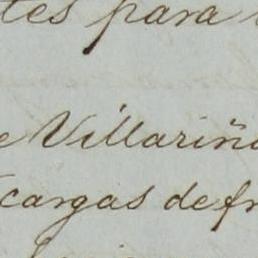 tes para
Villariño
cargas de fr